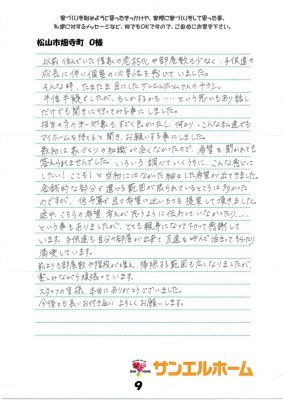 家づくりを始めようと思ったきっかけや、実際に家づくりをして思った事、
私達に対するメッセージなど、何でもOKですので、ご自由にお書き下さい。
松山市畑寺町 O様
以前住んでいた借家の老朽化や部屋数も少なく、子供達の
成長に伴い個室の必要性を感じていました。
そんな時、たまたま目にしたサンエルホームさんのチラシ。
半信半疑でしたが、もしかするかも・・・という思いもあり話し
だけでも聞きに行ってみる事にしました。
担当の方の第一印象もすごく良いし、何より、こんな私達でも
マイホームを持てると聞き、お願いする事にしました。
最初は家づくりの知識が全くなかったので、希望を聞かれても
答えられませんでした。いろいろ調べていくうちに、こんな感じに
したい！ここも！と当初にはなかった細々した希望が出てきました。
金額的な部分で選べる範囲が限られているところは多かった
のですが、低予算で且つ希望に近いものを提案して頂きました。
途中、こちらの希望、考えが思うように伝わっていなかったり…
という事もありましたが、とても親身になって下さって感謝して
います。子供達も自分の部屋が出来て友達を呼んで泊まってもらったり
満喫しています。
前よりも部屋数や階段が増え、掃除する範囲も広くなりましたが、
楽しみながら頑張っています。
スタッフの皆様、本当にありがとうございました。
今後とも長いお付き合いよろしくお願いします。
サンエルホーム
9